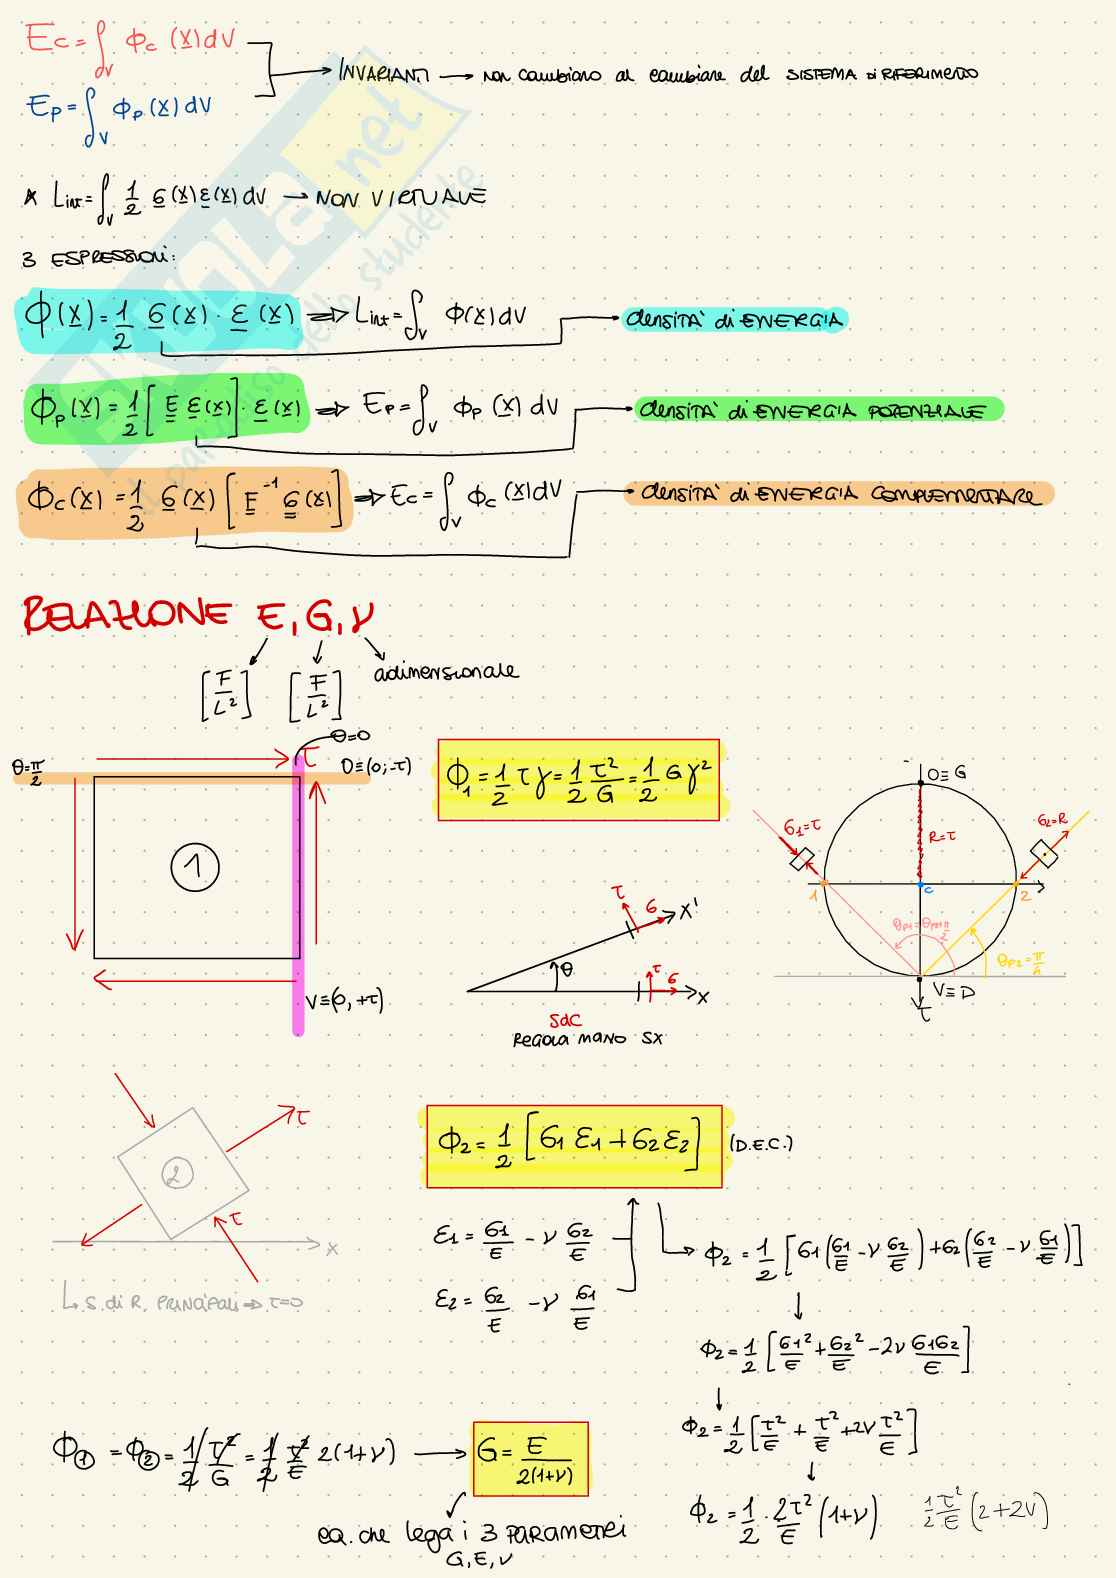 Ec = ∫dV ϕc (x) dV
→ INVARIANTI → non cambiano al cambiare del SISTEMA di RIFERIMENTO
Ep = ∫dV ϕp (x) dV
* Lint = ∫V 1/2 σ(x) ε(x) dV → NON VIRTUALE
3 ESPRESSIONI:
ϕ(x) = 1/2 σ(x) · ε(x) ⇒ Lint = ∫V ϕ(x) dV → densità di ENERGIA
ϕp(x) = 1/2 [E ε(x)] · ε(x) ⇒ Ep = ∫V ϕp (x) dV → densità di ENERGIA POTENZIALE
ϕc(x) = 1/2 σ(x) [E⁻¹ σ(x)] ⇒ Ec = ∫V ϕc (x) dV → densità di ENERGIA COMPLEMENTARE
RELAZIONE E, G, ν
[F/L²] [F/L²] adimensionale
θ=0
θ=π/2
τ
O≡(0;-τ)
1
V≡(0,+τ)
ϕ1 = 1/2 τ γ = 1/2 τ²/G = 1/2 G γ²
τ σ x'
θ
τ σ x
SdC
REGOLA MANO SX
O≡G
σ1=τ
R=τ
σ2=R
1 c 2
θp1=θp2+π/2
θp2=π/4
V≡D
τ
2
τ
τ
x
↳ S. di R. PRINCIPALI ⇒ τ=0
ϕ2 = 1/2 [σ1 ε1 + σ2 ε2] (D.E.C.)
ε1 = σ1/E - ν σ2/E
ε2 = σ2/E - ν σ1/E
ϕ2 = 1/2 [σ1(σ1/E - ν σ2/E) + σ2(σ2/E - ν σ1/E)]
ϕ2 = 1/2 [σ1²/E + σ2²/E - 2ν σ1σ2/E]
ϕ2 = 1/2 [τ²/E + τ²/E + 2ν τ²/E]
ϕ2 = 1/2 · 2τ²/E (1+ν) 1/2 τ²/E (2+2ν)
ϕ① = ϕ② = 1/2 τ²/G = 1/2 τ²/E 2(1+ν) → G = E/2(1+ν)
eq. che lega i 3 PARAMETRI
G, E, ν